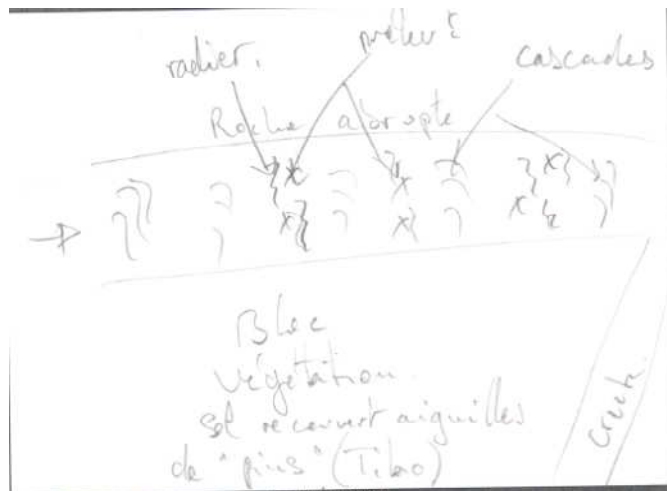 radier.
cascades
Roche abrupte
Bloc
végétation.
sol recouvert aiguilles
de "pins" (Tibo)
Creek